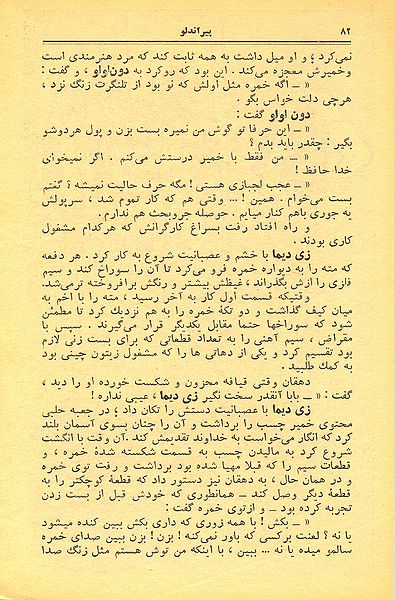 ۸۲ پیراندلو
نمی‌کرد ؛ و او میل داشت به همه ثابت کند که مرد هنرمندی است
وخمیرش معجزه می‌کند . این بود که روکرد به دون‌اولو ، و گفت :
« ــ اگه خمره مثل اولش که نو بود از تلنگرت زنگ نزد ،
هرچی دلت خواس بگو .
دون اولو گفت :
« ــ این حرفا تو گوش من نمیره بست بزن و پول هردوشو
بگیر : چقدر باید بدم ؟
« ــ من فقط با خمیر درستش می‌کنم . اگر نمیخوای
خدا حافظ !
« ــ عجب لجبازی هستی ! مگه حرف حالیت نمیشه ؟ گفتم
بست می‌خوام . همین ! ... وقتی هم که کار تموم شد ، سرپولش
یه جوری باهم کنار میایم . حوصله جروبحث هم ندارم .
و راه افتاد رفت بسراغ کارگرانش که هرکدام مشغول
کاری بودند .
زی دیما با خشم و عصبانیت شروع به کار کرد . هر دفعه
که مته را به دیواره خمره فرو می‌کرد تا آن را سوراخ کند و سیم
فازی را ازش بگذراند ، غیظش بیشتر و رنگش برافروخته ترمی‌شد.
وقتیکه قسمت اول کار به آخر رسید ، مته را با اخم به
میان کیف گذاشت و دو تکهٔ خمره را به هم نزدیک کرد تا مطمئن
شود که سوراخها حتما مقابل یکدیگر قرار می‌گیرند . سپس با
مقراض ، سیم آهنی را به تعداد قطعاتی که برای بست زنی لازم
بود تقسیم کرد و یکی از دهاتی ها را که مشغول زیتون چینی بود
به کمك طلبید .
دهقان وقتی قیافه محزون و شکست خورده او را دید ،
گفت : « ــ بابا آنقدر سخت نگیر زی دیما ، عیبی نداره !
زی دیما با عصبانیت دستش را تکان داد ؛ در جعبه حلبی
محتوی خمیر چسب را برداشت و آن را چنان بسوی آسمان بلند
کرد که انگار می‌خواست به خداوند تقدیمش کند. آن وقت با انگشت
شروع کرد به مالیدن چسب به قسمت شکسته شدهٔ خمره ، و
قطعات سیم را که قبلا مهیا شده بود برداشت و رفت توی خمره
و در همان حال ، به دهقان نیز دستور داد که قطعهٔ کوچکتر را به
قطعهٔ دیگر وصل کند ــ همانطوری که خودش قبل از بست زدن
تجربه کرده بود ــ و ازتوی خمره گفت :
« ــ بکش ! با همه زوری که داری بکش ببین کنده میشود
یا نه ؟ لعنت برکسی که باور نمی‌کنه ! بزن ! بزن ببین صدای خمره
سالمو میده یا نه ... ببین ، با اینکه من توش هستم مثل زنگ صدا